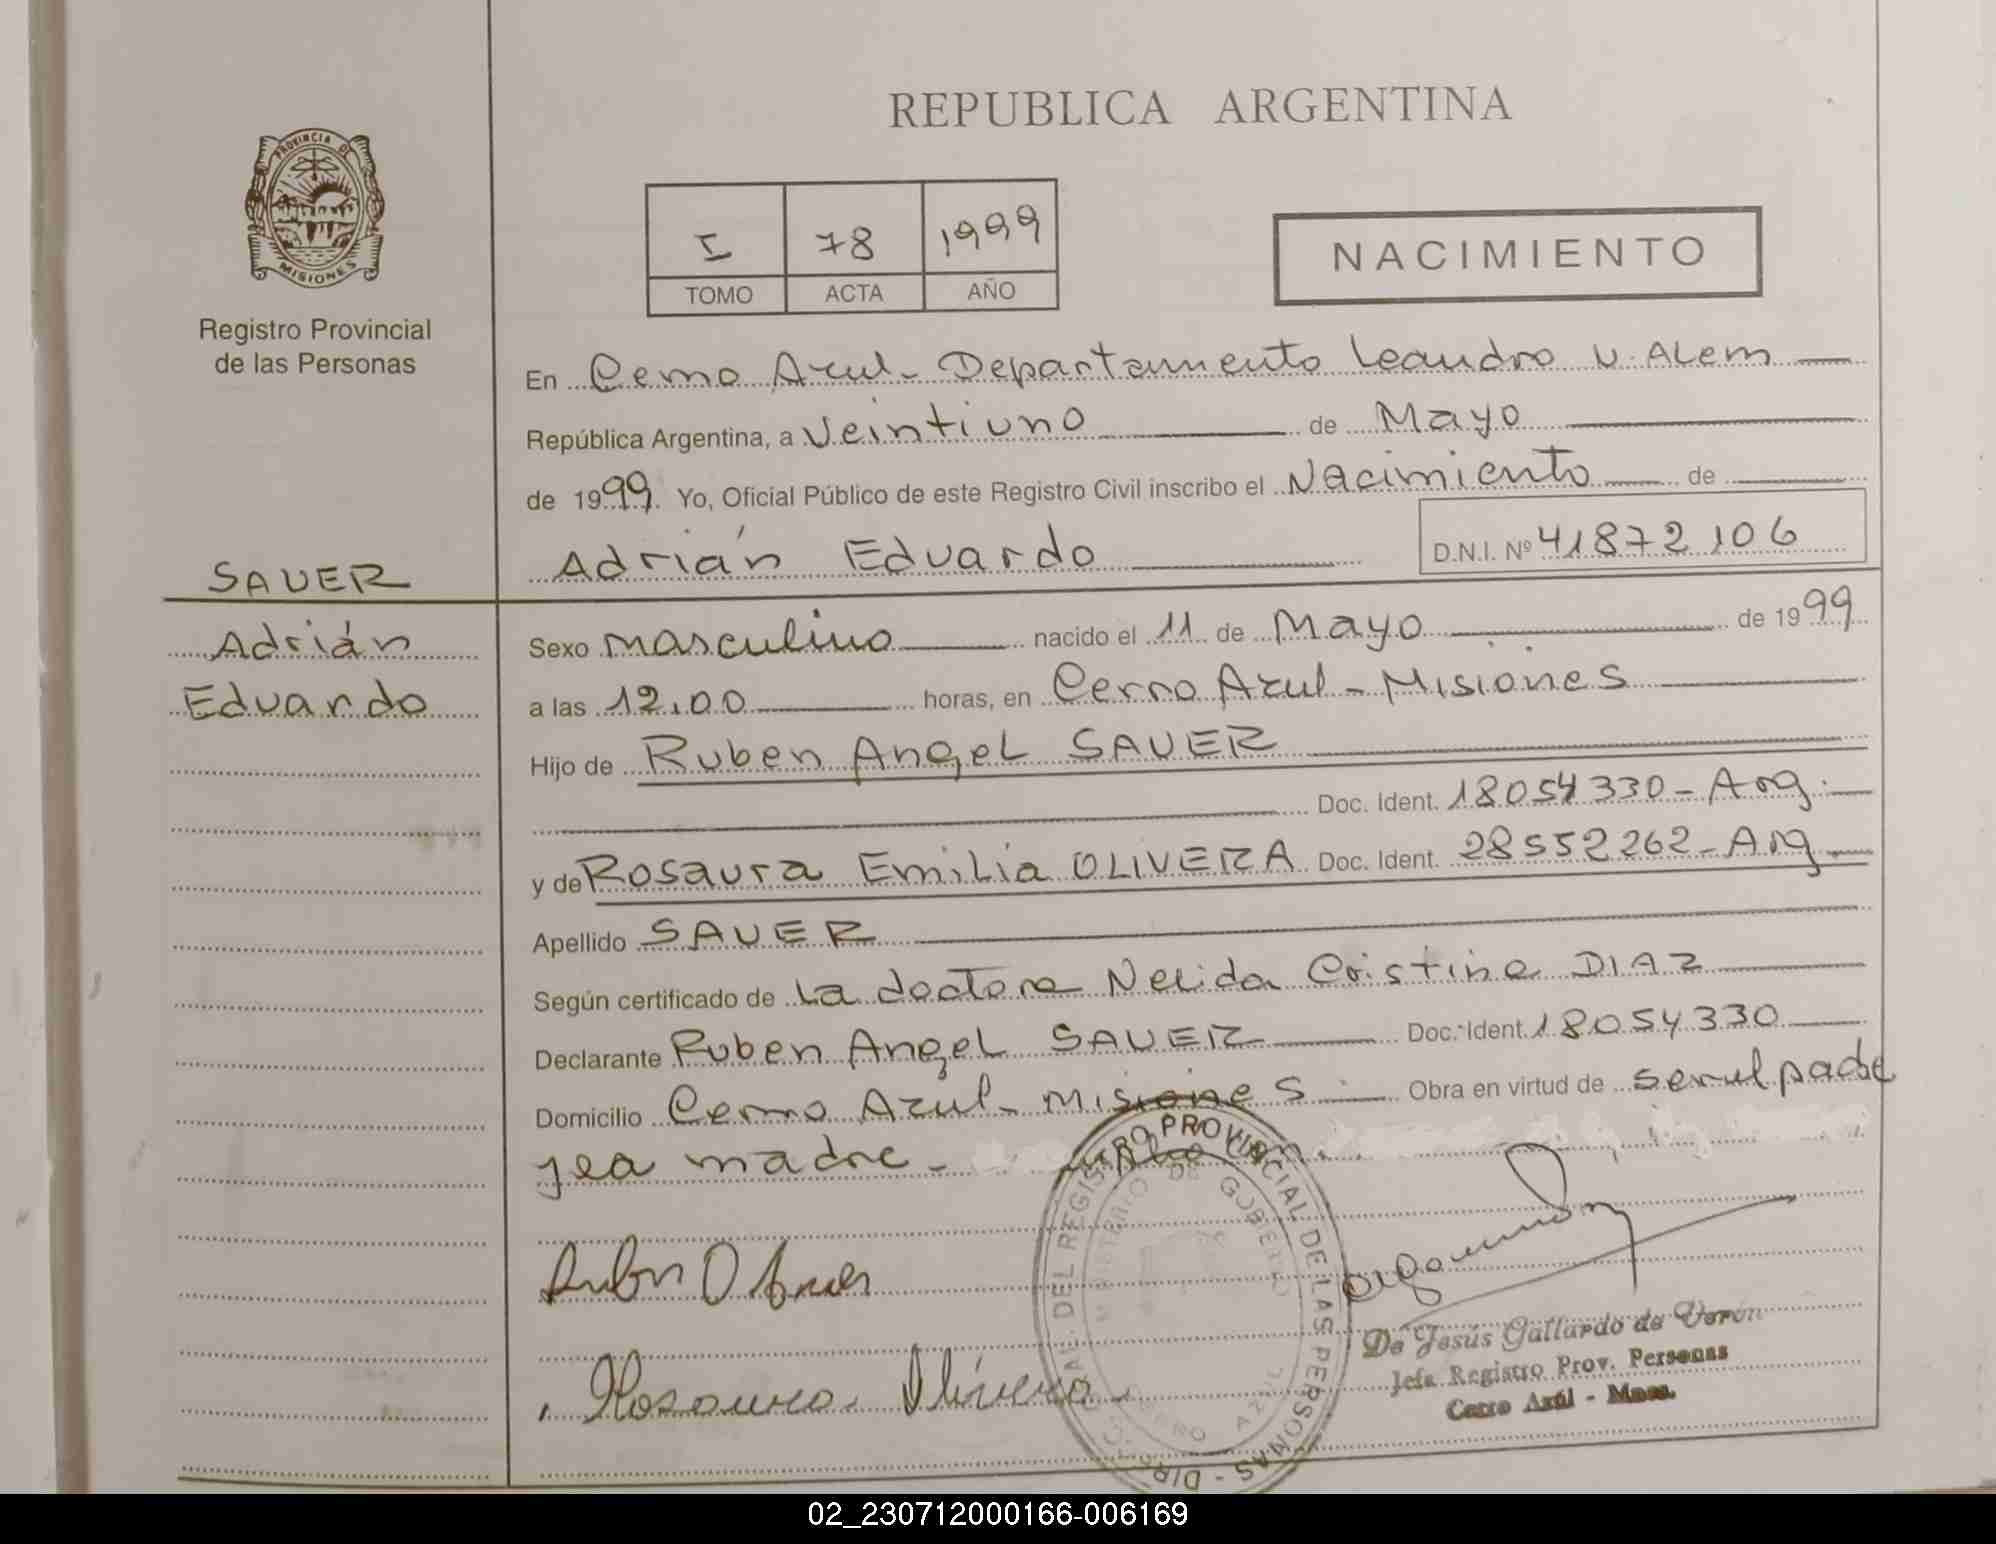 REPUBLICA ARGENTINA
PROVINCIA DE
MISIONES
Registro Provincial
de las Personas
I 78 1999
TOMO ACTA AÑO
NACIMIENTO
En Cerro Azul - Departamento Leandro N. Alem
República Argentina, a Veintiuno de Mayo
de 1999. Yo, Oficial Público de este Registro Civil inscribo el Nacimiento de
Adrián Eduardo D.N.I. Nº 41872106
SAUER
Adrián
Eduardo
Sexo masculino nacido el 11 de Mayo de 1999
a las 12.00 horas, en Cerro Azul - Misiones
Hijo de Ruben Angel SAUER
Doc. Ident. 18054330 - Arg.
y de Rosaura Emilia OLIVERA Doc. Ident. 28552262 - Arg.
Apellido SAUER
Según certificado de La doctora Nelida Cristina DIAZ
Declarante Ruben Angel SAUER Doc. Ident. 18054330
Domicilio Cerro Azul - Misiones Obra en virtud de ser el padre
y la madre -
Rosaura Olivera
DIRECC GRAL DEL REGISTRO PROVINCIAL DE LAS PERSONAS
MINISTERIO DE GOBIERNO
CERRO AZUL
De Jesús Gallardo de Verón
Jefa Registro Prov. Personas
Cerro Azúl - Mnes.
02_230712000166-006169